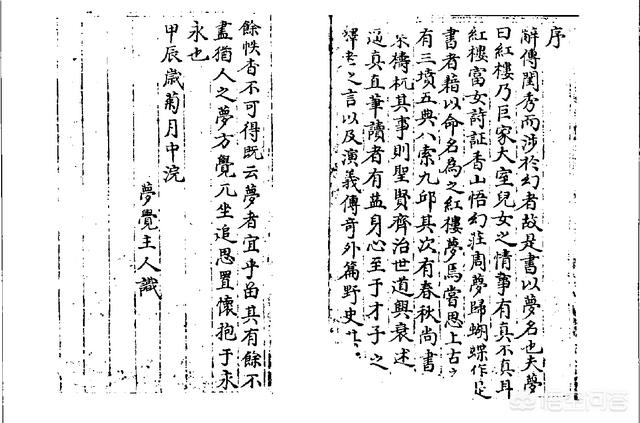 序
辭傳閨秀而涉於幻者故是書以夢名也夫夢
曰紅樓乃巨家大室兒女之情事有真不真耳
紅樓富女詩証香山悟幻莊周夢歸蝴蝶作是
書者藉以命名為之紅樓夢焉嘗思上古之
有三墳五典八索九邱其次有春秋尚書
乘檮杌其事則聖賢齊治世道興衰述
逼真直筆讀者有益身心至于才子之
釋老之言以及演義傳奇外篇野史
餘怢杳不可得既云夢者宜乎留其有餘不
盡猶人之夢方覺兀坐追思置懷抱于永
永也
甲辰歲菊月中浣
夢覺主人識
悟空问答